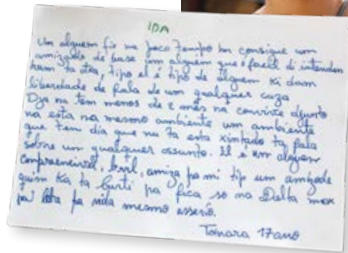 IDA
Um alguem fix na poco tempo hn consigue um
amizade de base um alguem que é facil di intenden
ham ta dia, tipo el é tipo de alguem ki dam
liberdade de fala de um qualquer cuza
Dja na tem menos de 2 mês na convive djunto
na esta na mesmo ambiente um ambiente
que tem dia que nu ta esta xintado ta fala
sobre um qualquer assunto. El é um alguem
compreensivel, amiga pa mi tip um amizade
quim ka ta curti pa fica so na Delta mas
pa vida mesmo esserio.
Tamara 17 ano